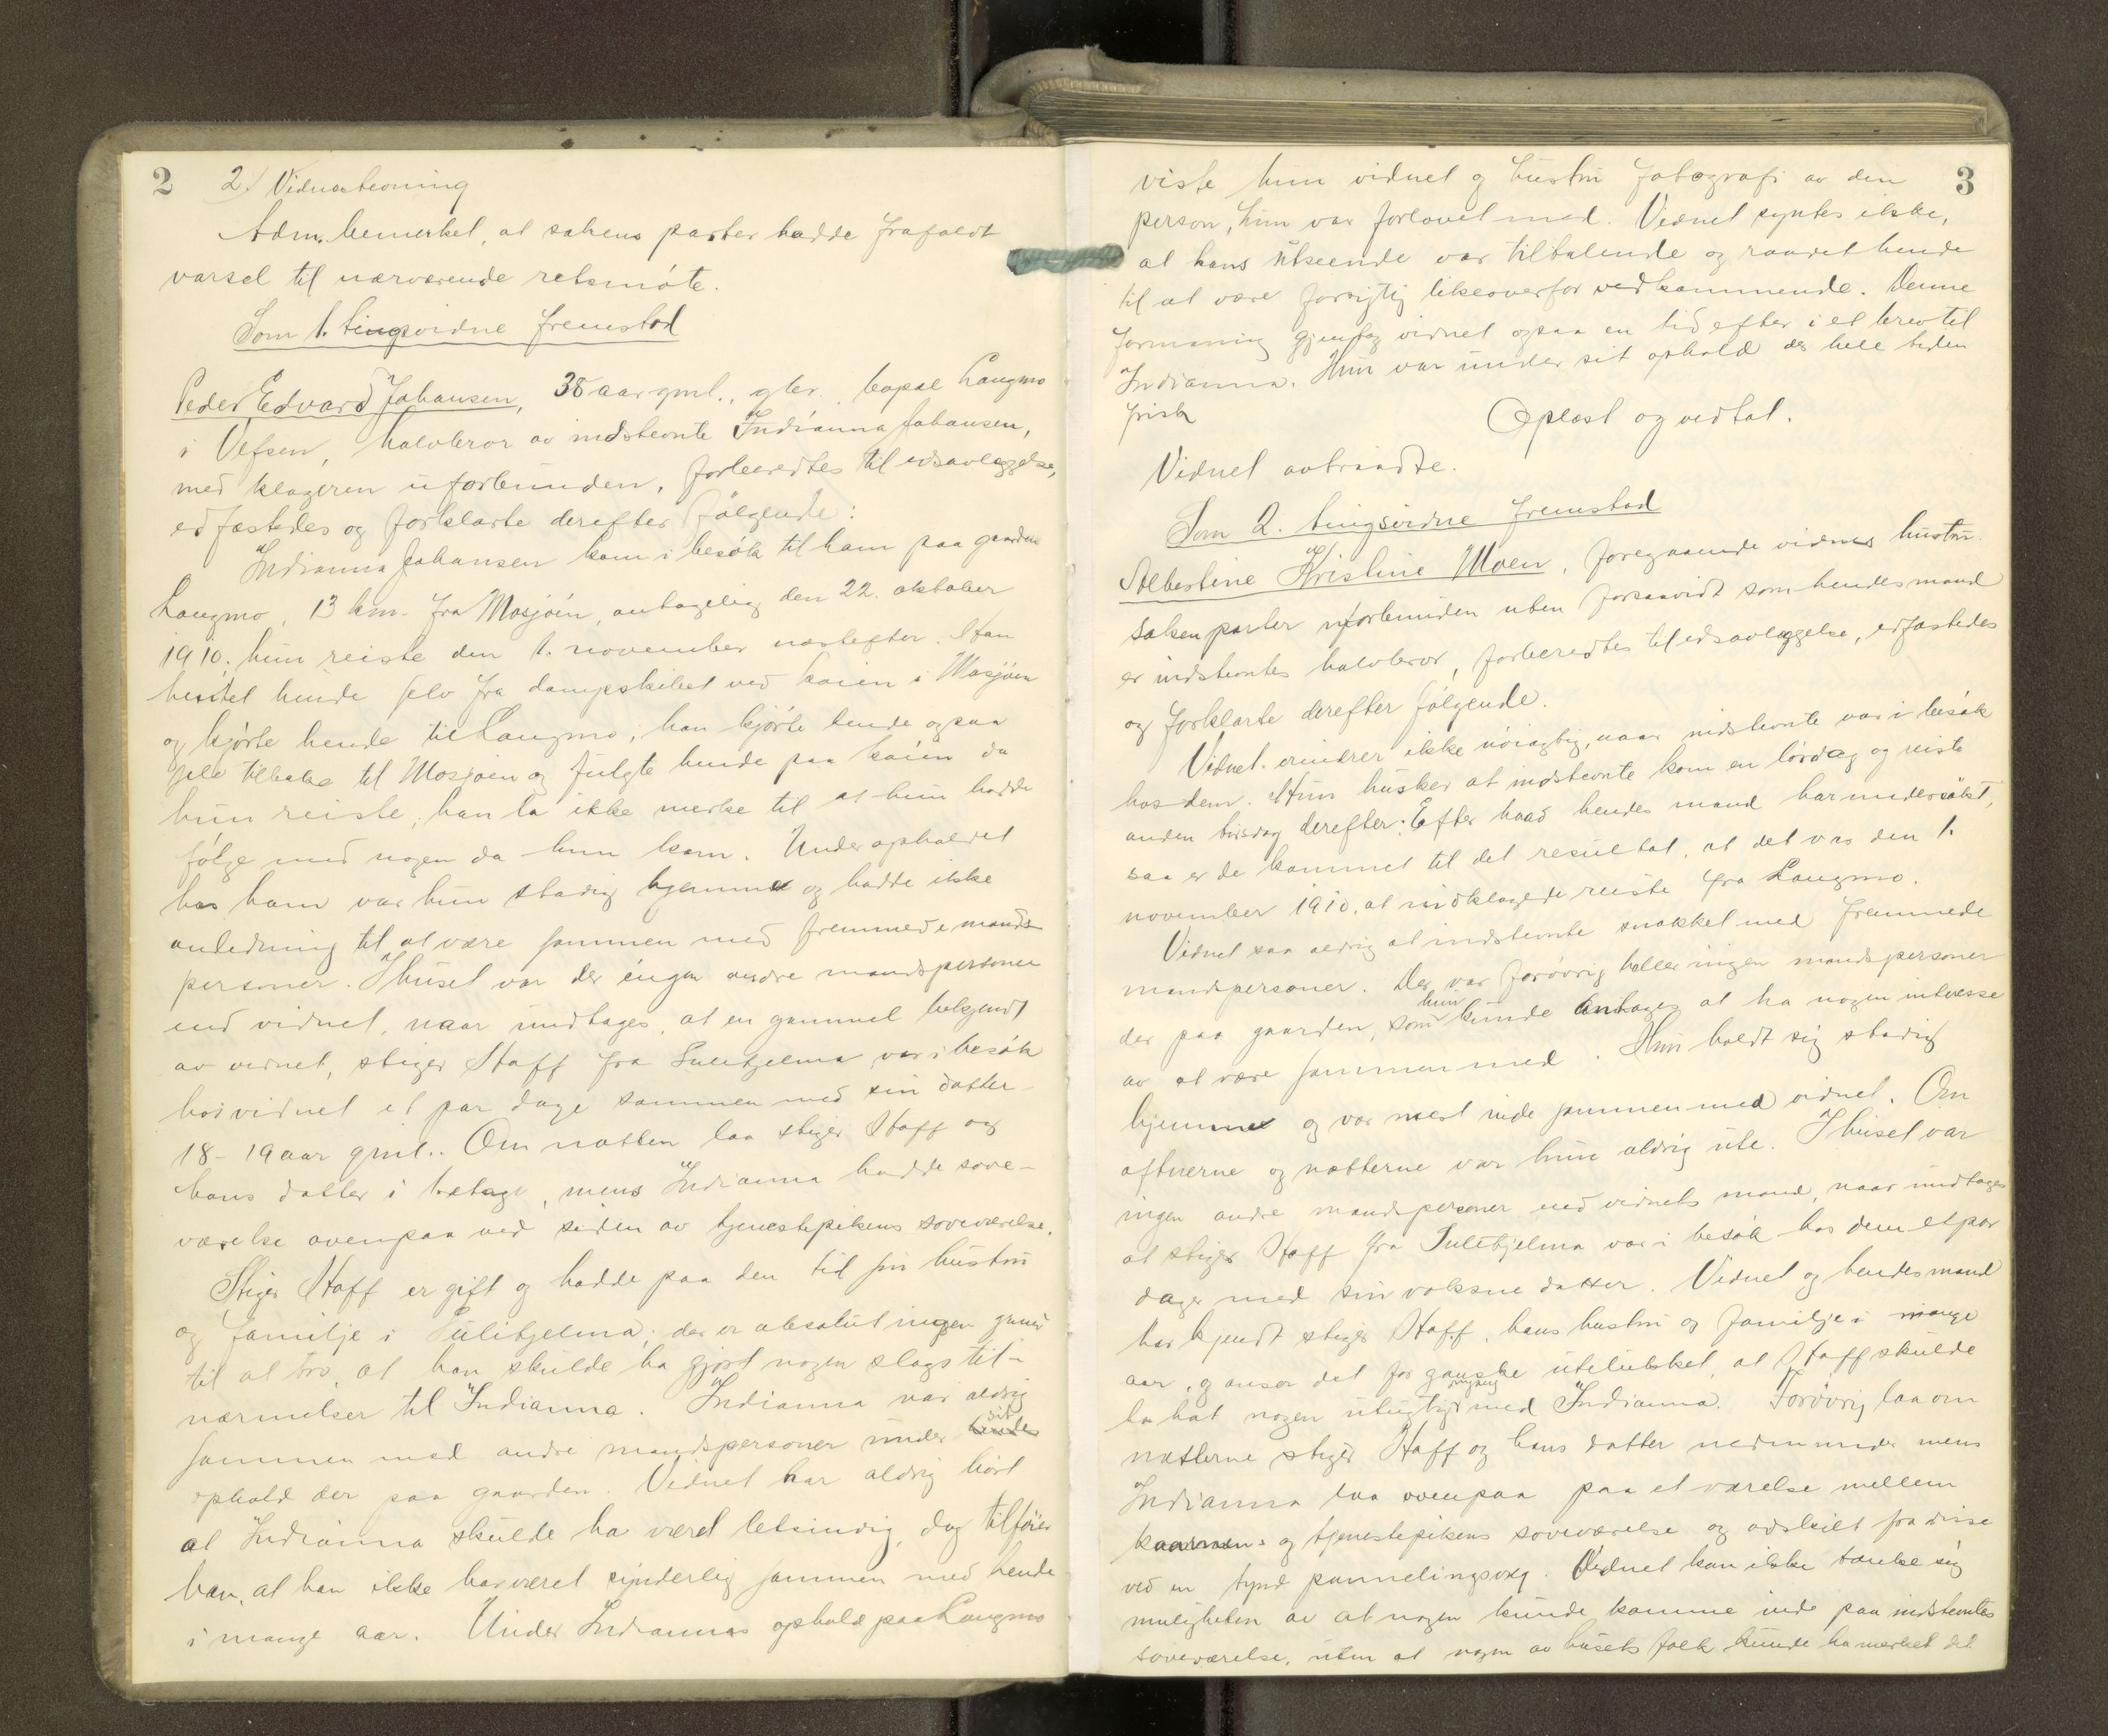 2
2) Vidnestevning
Adm. bemerket, at sakens parter hadde frafaldt
varsel til nærværende retsmøte.
Som 1. tingsvidne fremstod
Peder Edvard Johansen, 38 aar gml., gbr., bopæl Langmo
i Vefsen, halvbror av indstevnte Indianna Johansen,
med klageren uforbunden, forberedtes til edsavlæggelse,
edfæstedes og forklarte derefter følgende:
Indianna Johansen kom i besøk til ham paa gaarden
Langmo, 13 km. fra Mosjøen, antagelig den 22. oktober
1910; hun reiste den 1. november næstefter. Han
hentet hende selv fra dampskibet ved kaien i Mosjøen
og kjørte hende til Langmo, han kjørte hende ogsaa
selv tilbake til Mosjøen og fulgte hende paa kaien da
hun reiste; han la ikke merke til at hun hadde
følge med nogen da hun kom. Under opholdet
hos ham var hun stadig hjemme og hadde ikke
anledning til at være sammen med fremmede mands-
personer. I huset var der ingen andre mandspersoner
end vidnet, naar undtages, at en gammel bekjendt
av vidnet, stiger Staff fra Sulitjelma var i besøk
hos vidnet et par dage sammen med sin datter
18-19 aar gml.. Om natten laa stiger Staff og
hans datter i 1. etage, mens Indianna hadde sove-
værelse ovenpaa ved siden av tjenestepikens soveværelse.
Stiger Staff er gift og hadde paa den tid sin hustru
og familje i Sulitjelma; der er absolut ingen grund
til at tro, at han skulde ha gjort nogen slags til-
nærmelser til Indianna. Indianna var aldrig
sammen med andre mandspersoner under hendes sit
ophold der paa gaarden. Vidnet har aldrig hørt
at Indianna skulde ha været letsindig, dog tilføier
han, at han ikke har været synderlig sammen med hende
i mange aar. Under Indiannas ophold paa Langmo
3
viste hun vidnet og hustru fotografi av den
person, hun var forlovet med. Vidnet syntes ikke,
at hans utseende var tiltalende og raadet hende
til at være forsigtig likeoverfor vedkommende. Denne
formaning gjentog vidnet ogsaa en tid efter i et brev til
Indianna. Hun var under sit ophold der hele tiden
frisk
Oplæst og vedtat.
Vidnet avtraadte.
Som 2. tingsvidne fremstod
Albertine Kristine Moen, foregaaende vidnes hustru.
Saken parter uforbunden uten forsaavidt som hendes mand
er indstevntes halvbror, forberedtes til edsavlæggelse, edfæstedes
og forklarte derefter følgende.
Vidnet erindrer ikke nøiagtig, naar indstevnte var i besøk
hos dem. Hun husker at indstevnte kom en lørdag og reiste
anden tirsdag derefter; Efter hvad hendes mand har undersøkt,
saa er de kommet til det resultat, at det var den 1.
november 1910, at indklagede reiste fra Langmo.
Vidnet saa aldrig at indstevnte snakket med fremmede
mandspersoner. Der var forøvrig heller ingen mandspersoner
der paa gaarden, som hun kunde antages at ha nogen interesse
av at være sammen med. Hun holdt sig stadig
hjemme og var mest inde sammen med vidnet. Om
aftnerne og nætterne var hun aldrig ute. I huset var
ingen andre mandspersoner end vidnets mand, naar undtages
at stiger Staff fra Sulitjelma var i besøk hos dem et par
dager med sin voksne datter. Vidnet og hendes mand
har kjendt stiger Staff, hans hustru og familje i mange
aar, og anser det for ganske utelukket, at Staff skulde
ha hat nogen utugtig omgang med Indianna. Forøvrig laa om
nætterne stiger Staff og hans datter nedenunder mens
Indianna laa ovenpaa paa et værelse mellem
og tjenestepikens soveværelse og adskilt fra disse
ved en tynd pannelingsvæg. Vidnet kan ikke tænke sig
muligheten av at nogen kunde komme ind paa indstevntes
soveværelse, uten at nogen av husets folk kunde ha merket det